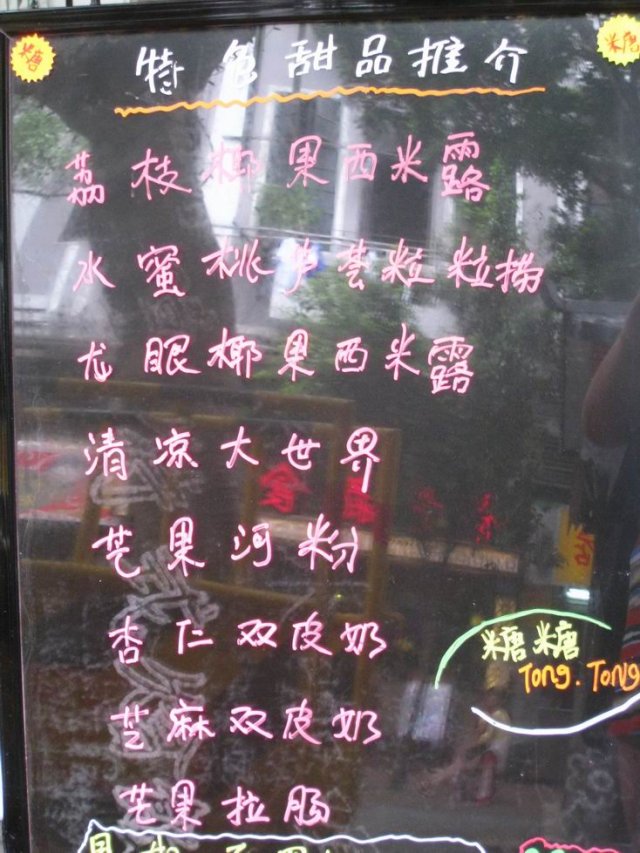 糖
糖
特色甜品推介
荔枝椰果西米露
水蜜桃芦荟粒粒捞
龙眼椰果西米露
清凉大世界
芒果河粉
杏仁双皮奶
芝麻双皮奶
芒果拉肠
糖糖
Tong.Tong